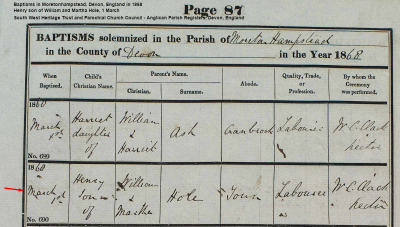 Baptisms in Moretonhampstead, Devon, England in 1868
Henry son of William and Martha Hole, 1 March
South West Heritage Trust and Parochial Church Council - Anglican Parish Registers, Devon, England
Page 87
BAPTISMS solemnized in the Parish of Moreton Hampstead
in the County of Devon in the Year 1868
When Baptized. Child's Christian Name. Parent's Name. Christian. Surname. Abode. Quality, Trade, or Profession. By whom the Ceremony was performed.
1868
March 1st
No. 689
Harriet
daughter
of
William
&
Harriet
Ash
Cranbrook
Labourer
W C Clack
Rector
1868
March 1st
No. 690
Henry
son
of
William
&
Martha
Hole
Town
Labourer
W C Clack
Rector